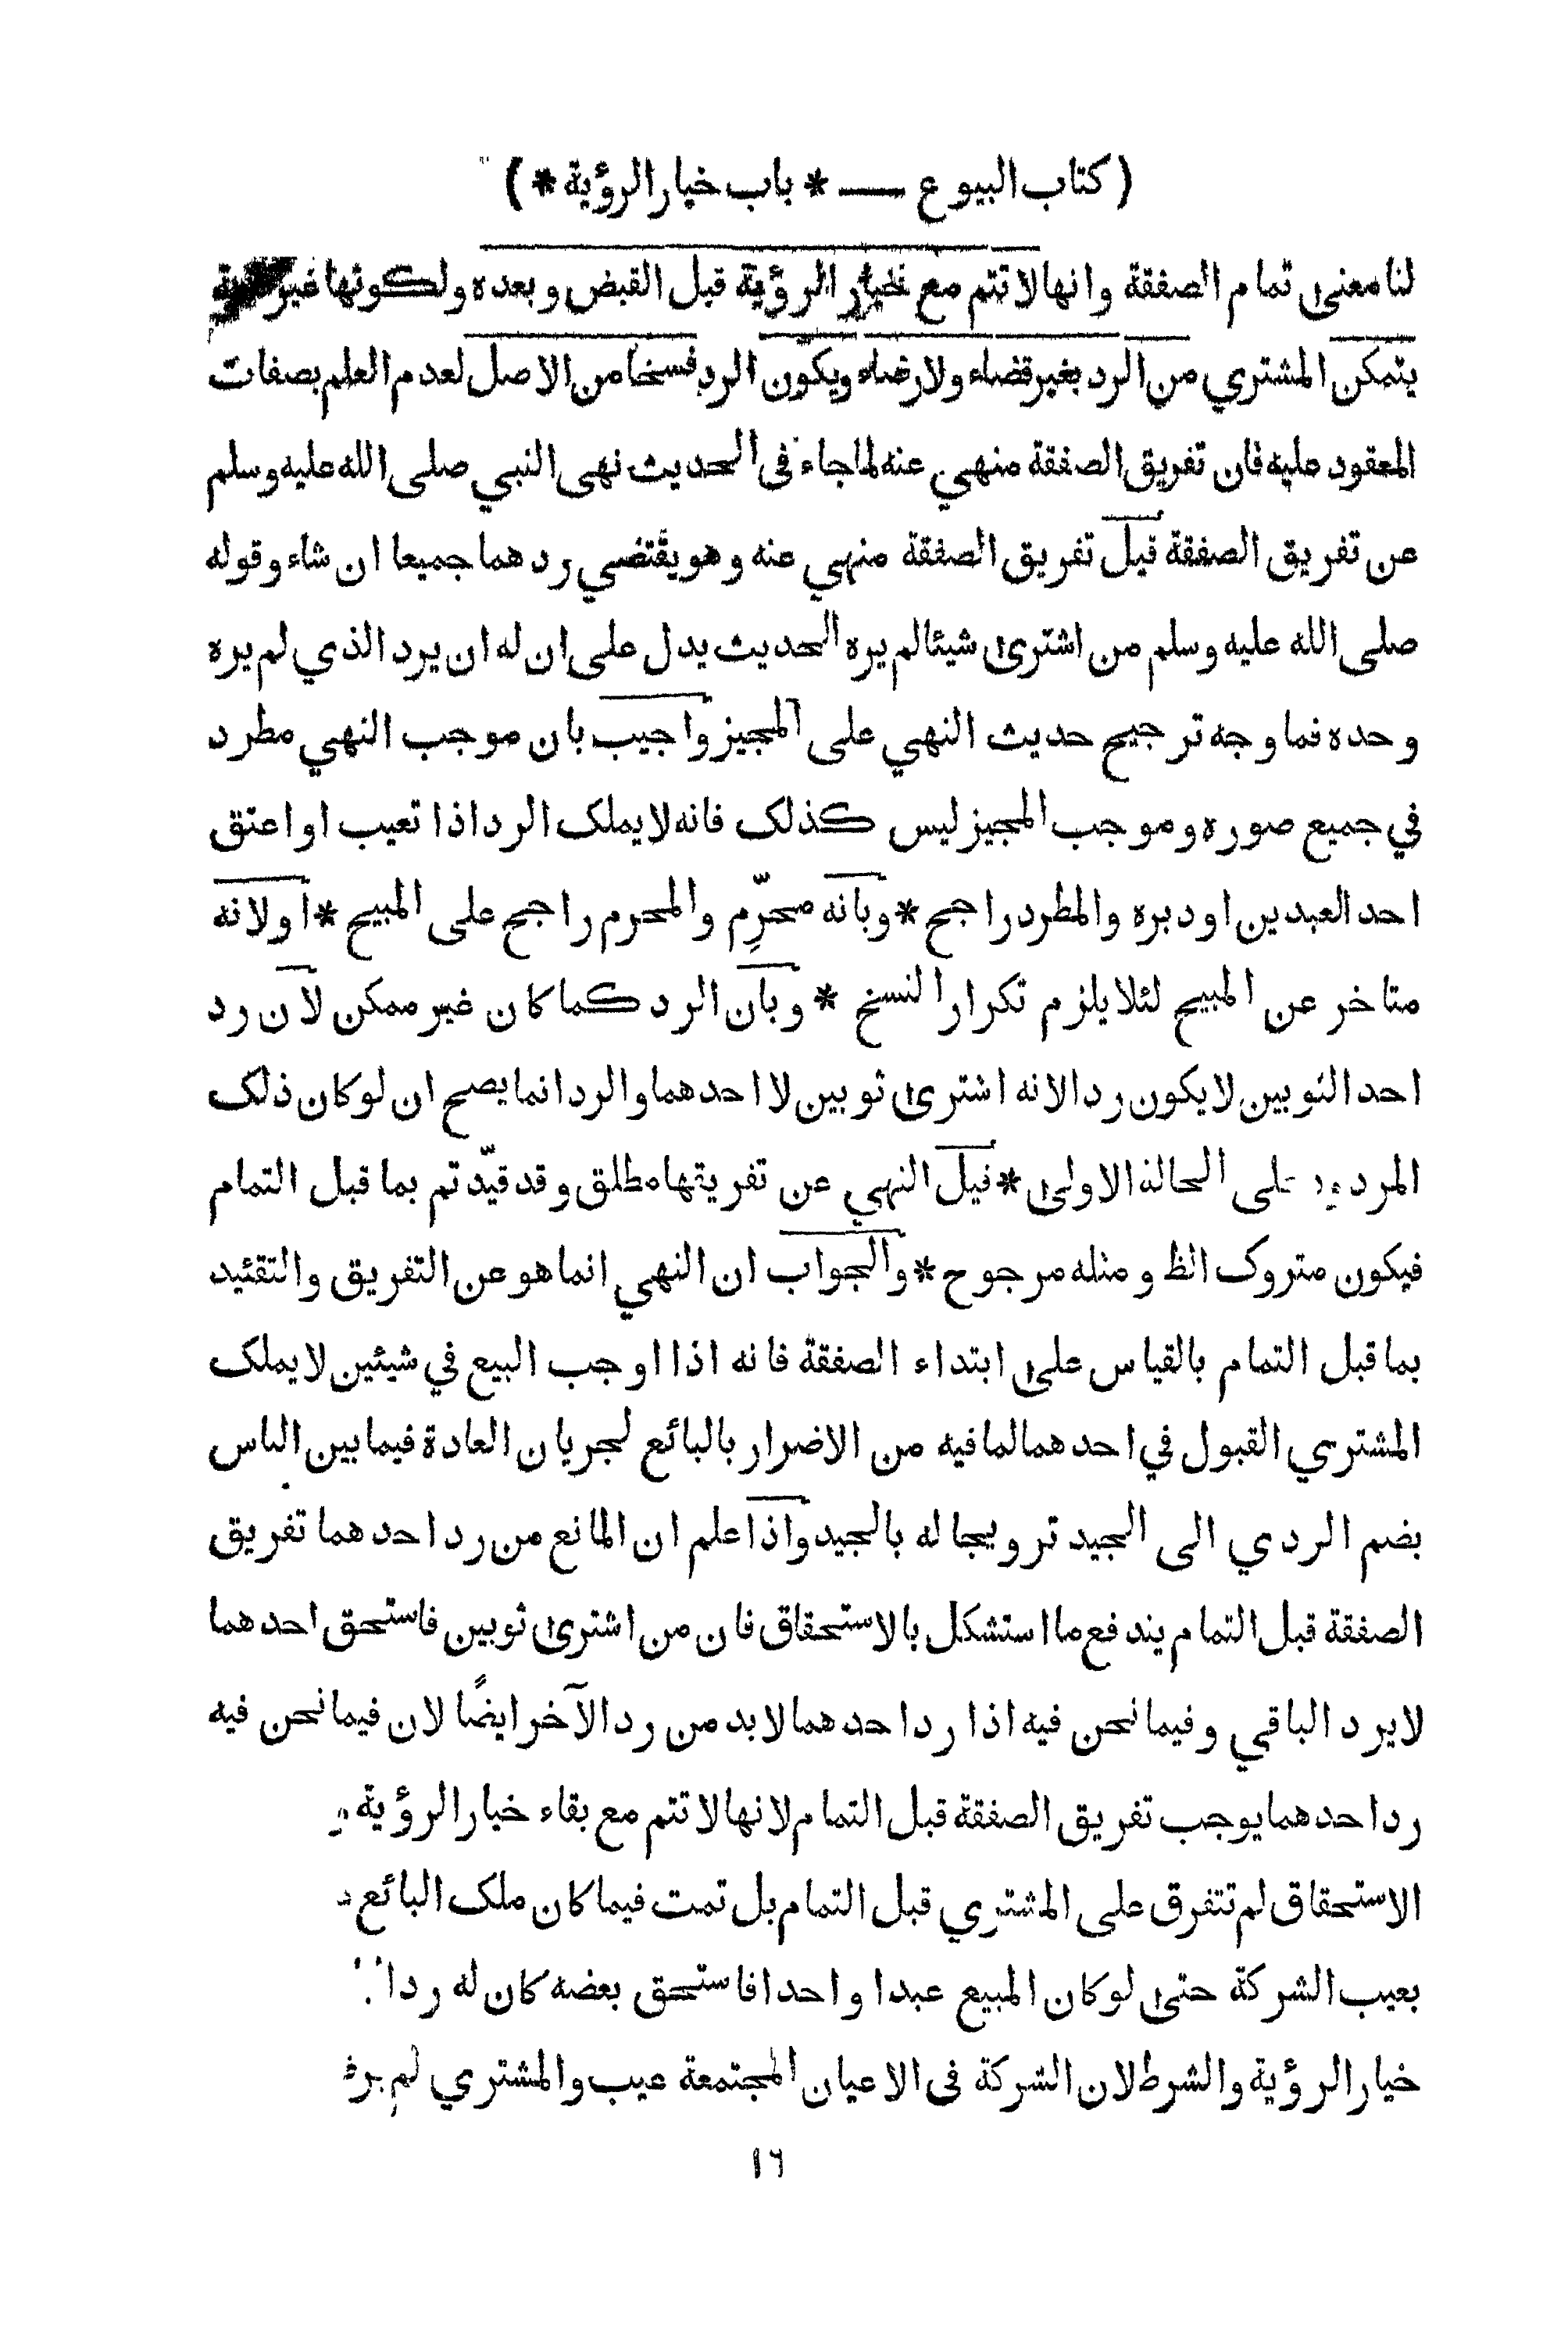 ( كتاب البيوع — * باب خيار الرؤية * )
لنا معنى تمام الصفقة وانها لا تتم مع خيار الرؤية قبل القبض وبعده ولكونها غير
يتمكن المشتري من الرد بغير قضاء ولا رضاء ويكون الرد فسخا من الاصل لعدم العلم بصفات
المعقود عليه فان تفريق الصفقة منهي عنه لما جاء في الحديث نهى النبي صلى الله عليه وسلم
عن تفريق الصفقة قيل تفريق الصفقة منهي عنه وهو يقتضي ردهما جميعا ان شاء وقوله
صلى الله عليه وسلم من اشترى شيئا لم يره الحديث يدل على ان له ان يرد الذي لم يره
وحده فما وجه ترجيح حديث النهي على المجيز واجيب بان موجب النهي مطرد
في جميع صوره وموجب المجيز ليس كذلك فانه لا يملك الرد اذا تعيب او اعتق
احد العبدين او دبره والمطرد راجح * وبانه محرّم والمحرم راجح على المبيح * اولانه
متاخر عن المبيح لئلا يلزم تكرار النسخ * وبان الرد كما كان غير ممكن لان رد
احد الثوبين لا يكون ردا لانه اشترى ثوبين لا احدهما والرد انما يصح ان لو كان ذلك
المردود على الحالة الاولى * قيل النهي عن تفريقها مطلق وقد قيّدتم بما قبل التمام
فيكون متروك الظ ومثله مرجوح * والجواب ان النهي انما هو عن التفريق والتقئيد
بما قبل التمام بالقياس على ابتداء الصفقة فانه اذا اوجب البيع في شيئين لا يملك
المشتري القبول في احدهما لما فيه من الاضرار بالبائع لجريان العادة فيما بين الناس
بضم الردي الى الجيد ترويجا له بالجيد واذا علم ان المانع من رد احدهما تفريق
الصفقة قبل التمام يندفع ما استشكل بالاستحقاق فان من اشترى ثوبين فاستحق احدهما
لا يرد الباقي وفيما نحن فيه اذا رد احدهما لابد من رد الآخر ايضًا لان فيما نحن فيه
رد احدهما يوجب تفريق الصفقة قبل التمام لانها لا تتم مع بقاء خيار الرؤية
الاستحقاق لم تتفرق على المشتري قبل التمام بل تمت فيما كان ملك البائع
بعيب الشركة حتى لو كان المبيع عبدا واحدا فاستحق بعضه كان له رد
خيار الرؤية والشرط لان الشركة في الاعيان المجتمعة عيب والمشتري لم
١٦